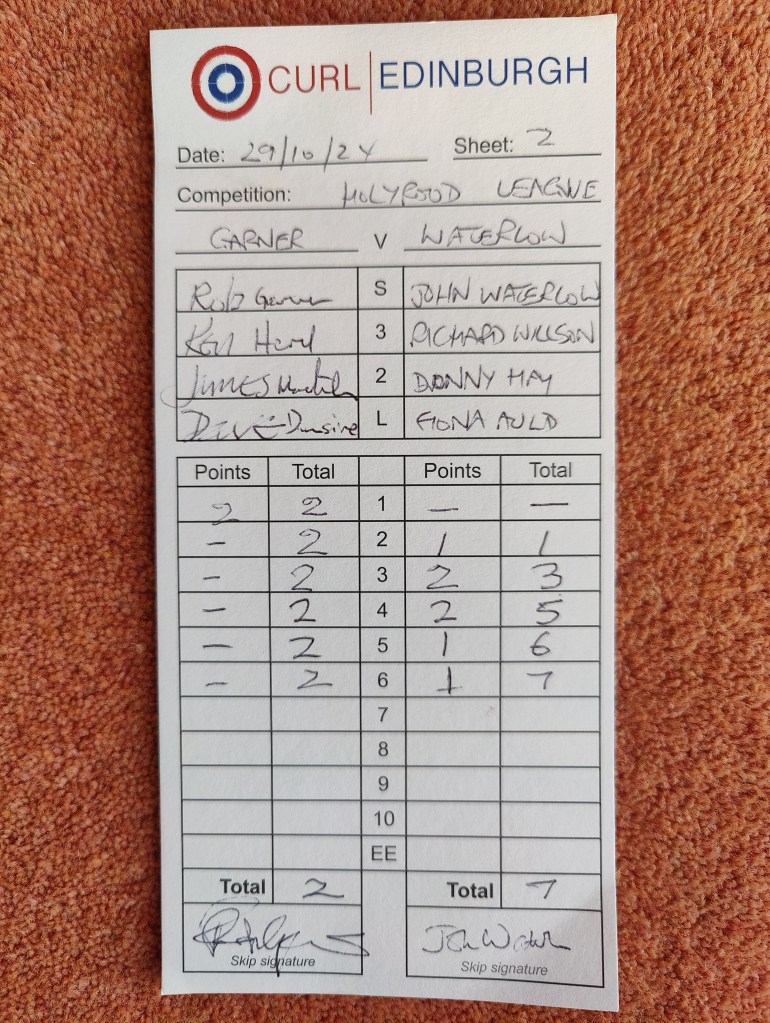 CURL EDINBURGH
Date: 29/10/24 Sheet: 2
Competition: HOLYROOD LEAGUE
GARNER V WATERLOW
Rob Garner S JOHN WATERLOW
Ken 3 RICHARD WILLSON
JAMES 2 DONNY HAY
DAVE L FIONA AULD
Points Total Points Total
2 2 1 — —
– 2 2 1 1
– 2 3 2 3
– 2 4 2 5
– 2 5 1 6
– 2 6 1 7
7
8
9
10
EE
Total 2 Total 7
Skip signature Skip signature